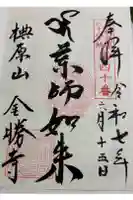 奉拝
令和七年
六月十五日
四十番
薬師如来
椣原山
金勝寺